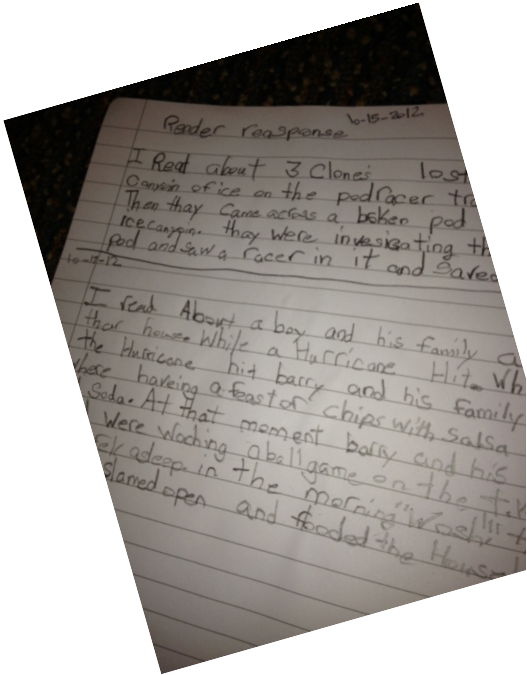 10-15-2012
Reader reasponse
I Read about 3 Clones lost
Canyoin of ice on the podracer
Then thay Came across a boken pod
icecanyoin. thay were invesigating
pod and saw a racer in it and Saved
10-17-12
I read About a boy and his family
thar house. While a Hurricane Hit. Wh
the Hurricane hit barry and his family
these haveing a feast of chips with Salsa
Soda. At that moment barry and his
Were waching a ball game on the t.v
asleep. in the morning "Woosh"!!!
Slamed open and flooded the House